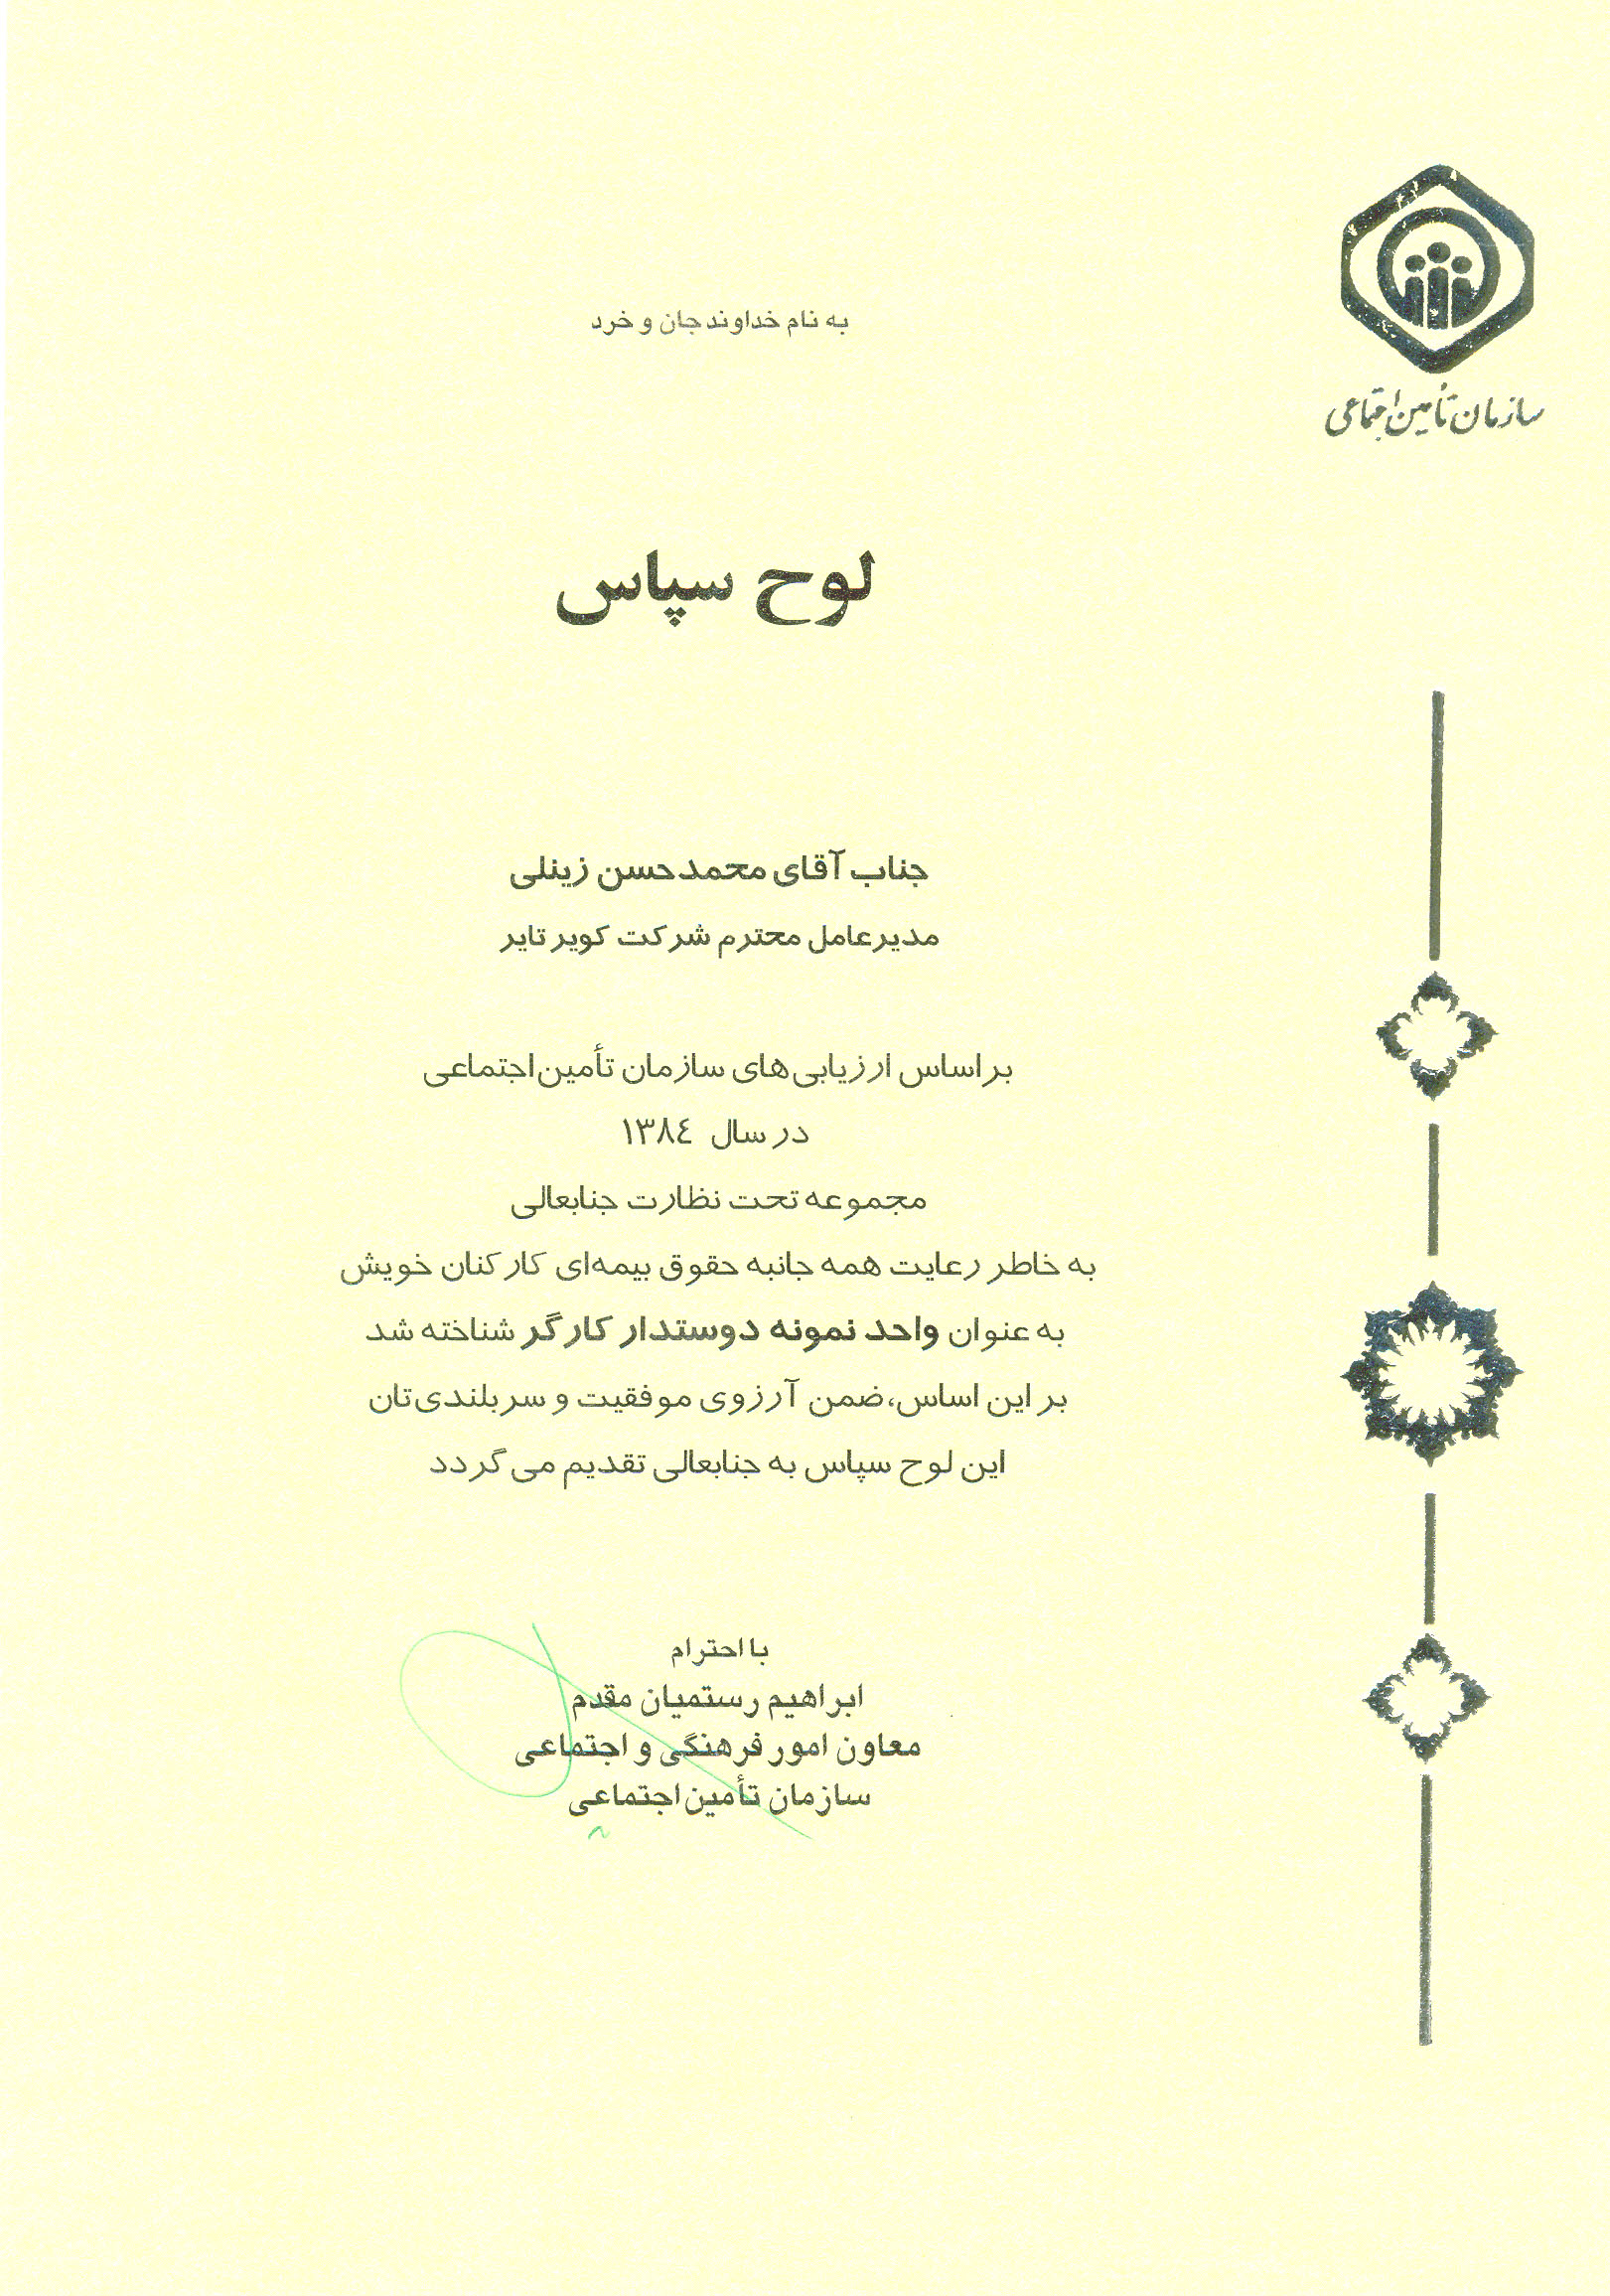 سازمان تأمین اجتماعی
به نام خداوند جان و خرد
لوح سپاس
جناب آقای محمدحسن زینلی
مدیرعامل محترم شرکت کویر تایر
بر اساس ارزیابی‌های سازمان تأمین اجتماعی
در سال ۱۳۸٤
مجموعه تحت نظارت جنابعالی
به خاطر رعایت همه جانبه حقوق بیمه‌ای کارکنان خویش
به عنوان واحد نمونه دوستدار کارگر شناخته شد
بر این اساس، ضمن آرزوی موفقیت و سربلندی‌تان
این لوح سپاس به جنابعالی تقدیم می گردد
با احترام
ابراهیم رستمیان مقدم
معاون امور فرهنگی و اجتماعی
سازمان تأمین اجتماعی